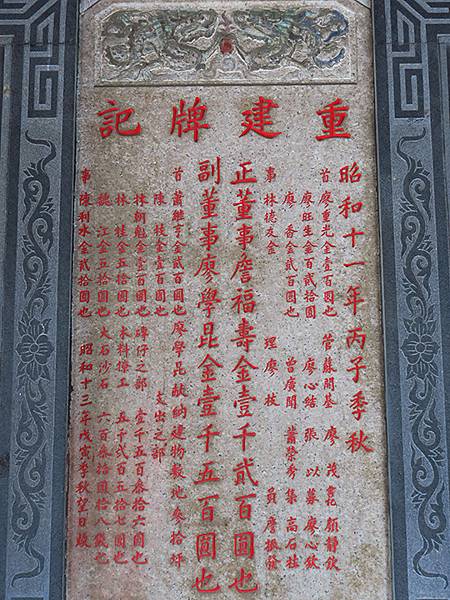 重建牌記
昭和十一年丙子季秋
首廖重光金壹百圓也 管蘇開基 廖茂 顏靜欽
廖旺生金百貳拾圓 廖心結 張以募 廖心欽
廖香金貳百圓也 曾廣開 蕭榮秀 集高石柱
事林德友金 理廖枝 員詹振發
正董事詹福壽金壹千貳百圓也
副董事廖學昆金壹千五百圓也
首蕭金貳百圓也 廖學昆献納建物敷地參拾坪
陳枝金壹百圓也 支出之部
林朝魁金壹百圓也 碑仔之部 壹千五百叁拾六圓也
林桂金五拾圓也 木料儅工 五千貳百五拾七圓也
魏江金五拾圓也 火石沙石 六百叁拾圓拾八錢也
事陳利水金貳拾圓也 昭和十三年戊寅季秋望日